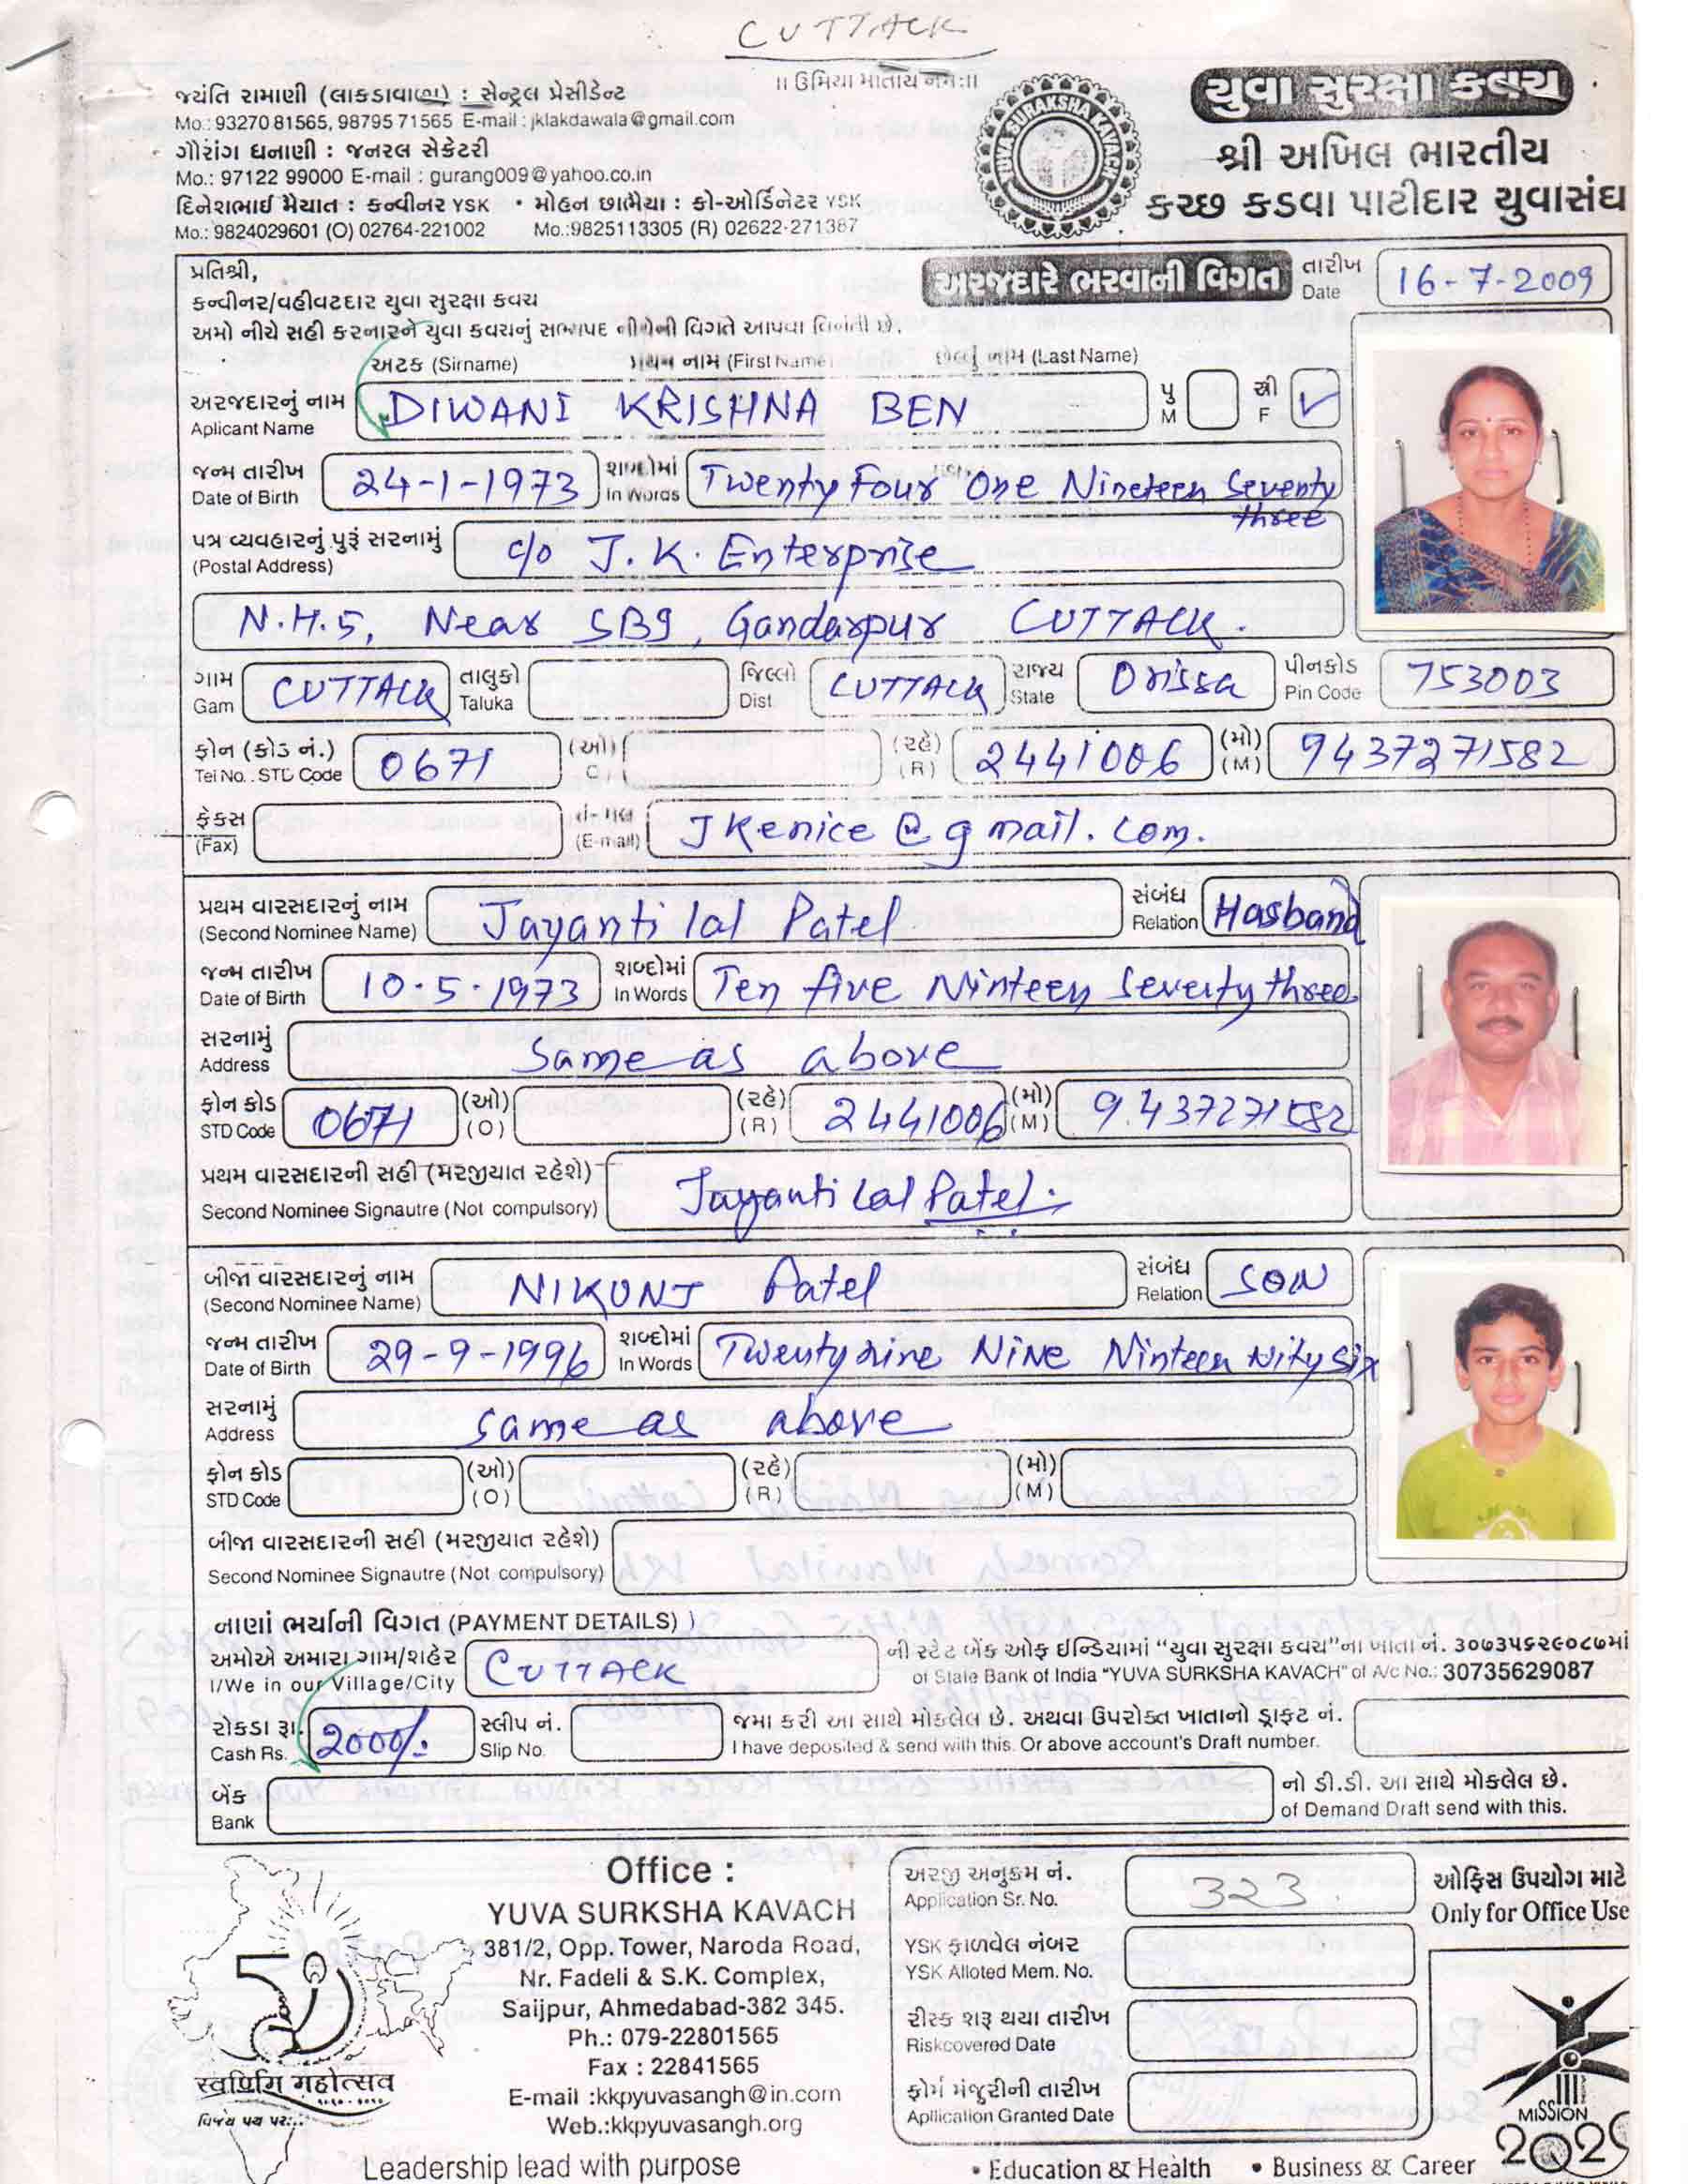 CUTTACK
॥ ઉમિયા માતાય નમઃ॥
જયંતિ રામાણી (લાકડાવાળા) : સેન્ટ્રલ પ્રેસીડેન્ટ
Mo.: 93270 81565, 98795 71565 E-mail : jklakdawala@gmail.com
ગૌરાંગ ધનાણી : જનરલ સેક્રેટરી
Mo.: 97122 99000 E-mail : gurang009@yahoo.co.in
દિનેશભાઈ મૈયાત : કન્વીનર YSK • મોહન છાભૈયા : કો-ઓર્ડિનેટર YSK
Mo.: 9824029601 (O) 02764-221002 Mo.:9825113305 (R) 02622-271387
YUVA SURAKSHA KAVACH
યુવા સુરક્ષા કવચ
શ્રી અખિલ ભારતીય
કચ્છ કડવા પાટીદાર યુવાસંઘ
પ્રતિશ્રી,
અરજદારે ભરવાની વિગત
તારીખ
Date
16-7-2009
કન્વીનર/વહીવટદાર યુવા સુરક્ષા કવચ
અમો નીચે સહી કરનારને યુવા કવચનું સભ્યપદ નીચેની વિગતે આપવા વિનંતી છે.
અટક (Sirname) પ્રથમ નામ (First Name) છેલ્લું નામ (Last Name)
અરજદારનું નામ
Aplicant Name
DIWANI KRISHNA BEN
પુ
M
સ્ત્રી
F
✓
જન્મ તારીખ
Date of Birth
24-1-1973
શબ્દોમાં
In Words
Twenty Four One Nineteen Seventy
three
પત્ર વ્યવહારનું પુરૂં સરનામું
(Postal Address)
c/o J.K. Enterprise
N.H.5, Near SBI, Gandarpur CUTTACK.
ગામ
Gam
CUTTACK
તાલુકો
Taluka
જિલ્લો
Dist
CUTTACK
રાજ્ય
State
Orissa
પીનકોડ
Pin Code
753003
ફોન (કોડ નં.)
Tel No.. STD Code
0671
(ઓ)
(રહે)
(R)
2441006
(મો)
(M)
9437271582
ફેક્સ
(Fax)
(E-mail)
Jkenice@gmail.com.
પ્રથમ વારસદારનું નામ
(Second Nominee Name)
Jayantilal Patel
સંબંધ
Relation
Hasband
જન્મ તારીખ
Date of Birth
10.5.1973
શબ્દોમાં
In Words
Ten five Ninteen Seventy three
સરનામું
Address
Same as above
ફોન કોડ
STD Code
0671
(ઓ)
(O)
(રહે)
(R)
2441006
(મો)
(M)
9437271582
પ્રથમ વારસદારની સહી (મરજીયાત રહેશે)
Second Nominee Signautre (Not compulsory)
Jayantilal Patel.
બીજા વારસદારનું નામ
(Second Nominee Name)
NIKUNJ Patel
સંબંધ
Relation
SON
જન્મ તારીખ
Date of Birth
29-9-1996
શબ્દોમાં
In Words
Twenty nine Nine Ninteen Nity six
સરનામું
Address
Same as above
ફોન કોડ
STD Code
(ઓ)
(O)
(રહે)
(R)
(મો)
(M)
બીજા વારસદારની સહી (મરજીયાત રહેશે)
Second Nominee Signautre (Not compulsory)
નાણાં ભર્યાની વિગત (PAYMENT DETAILS)
અમોએ અમારા ગામ/શહેર
I/We in our Village/City
CUTTACK
ની સ્ટેટ બેંક ઓફ ઈન્ડિયામાં "યુવા સુરક્ષા કવચ"ના ખાતા નં. ૩૦૭૩૫૬૨૯૦૮૭માં
of State Bank of India "YUVA SURKSHA KAVACH" of A/c No.: 30735629087
રોકડા રૂા.
Cash Rs.
2000/-
સ્લીપ નં.
Slip No.
જમા કરી આ સાથે મોકલેલ છે. અથવા ઉપરોક્ત ખાતાનો ડ્રાફ્ટ નં.
I have deposited & send with this. Or above account's Draft number.
બેંક
Bank
નો ડી.ડી. આ સાથે મોકલેલ છે.
of Demand Draft send with this.
Office :
YUVA SURKSHA KAVACH
381/2, Opp. Tower, Naroda Road,
Nr. Fadeli & S.K. Complex,
Saijpur, Ahmedabad-382 345.
Ph.: 079-22801565
Fax : 22841565
E-mail :kkpyuvasangh@in.com
Web.:kkpyuvasangh.org
Leadership lead with purpose
મહોત્સવ
અરજી અનુક્રમ નં.
Application Sr. No.
323
ઓફિસ ઉપયોગ માટે
Only for Office Use
YSK ફાળવેલ નંબર
YSK Alloted Mem. No.
રીસ્ક શરૂ થયા તારીખ
Riskcovered Date
ફોર્મ મંજુરીની તારીખ
Apllication Granted Date
MISSION
• Education & Health • Business & Career